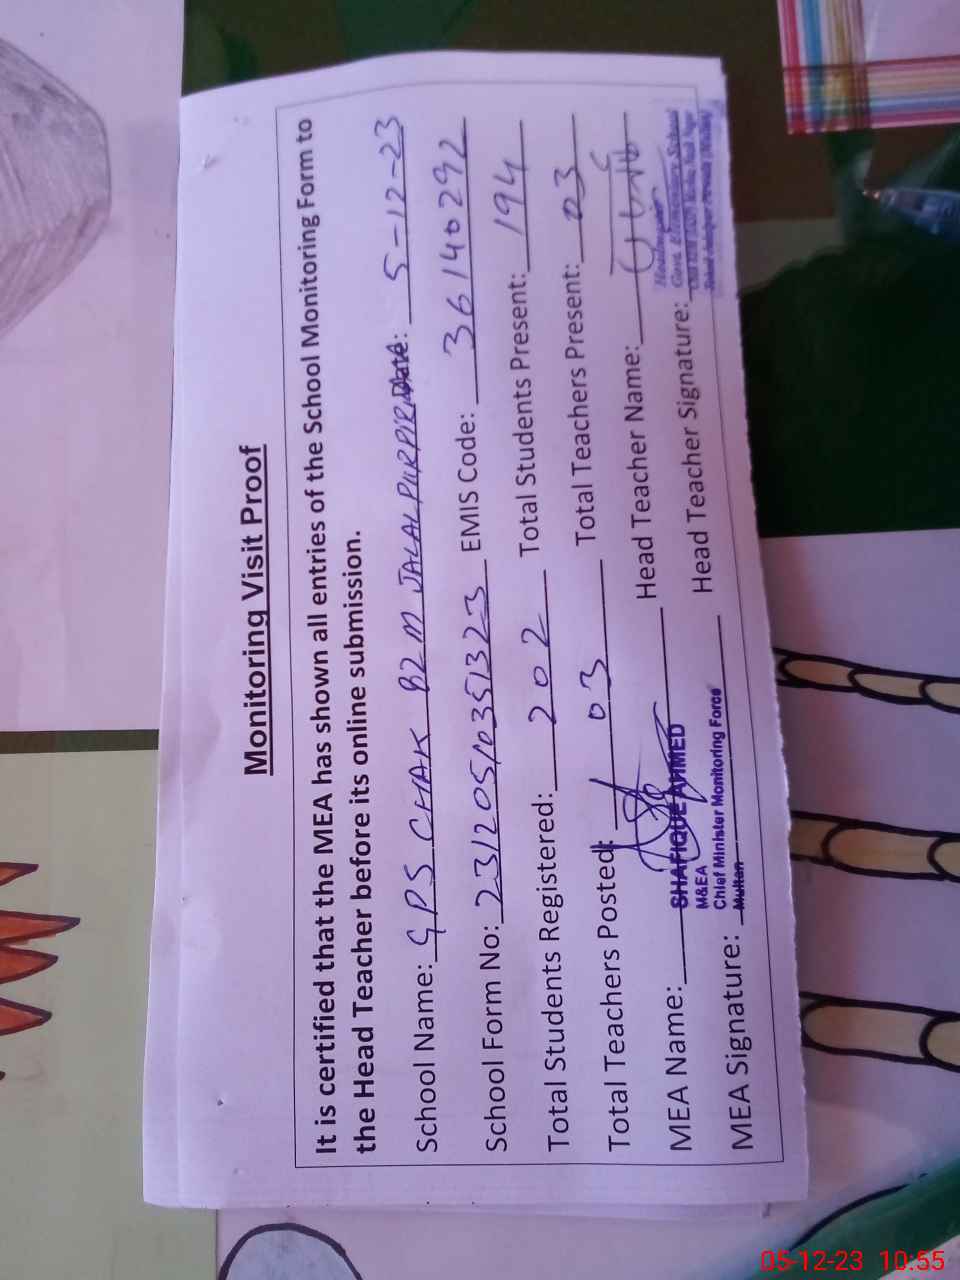 Monitoring Visit Proof
It is certified that the MEA has shown all entries of the School Monitoring Form to
the Head Teacher before its online submission.
School Name: GPS CHAK 82 M JALALPURPIRWALA Date: 5-12-23
School Form No: 231205103513 23 EMIS Code: 36140292
Total Students Registered: 202 Total Students Present: 194
Total Teachers Posted: 03 Total Teachers Present: 03
MEA Name: SHAFIQUE AHMED Head Teacher Name:
M&EA
Chief Minister Monitoring Force
Multan
MEA Signature: Head Teacher Signature:
Headmaster
Govt. Elementary School
05-12-23 10:55